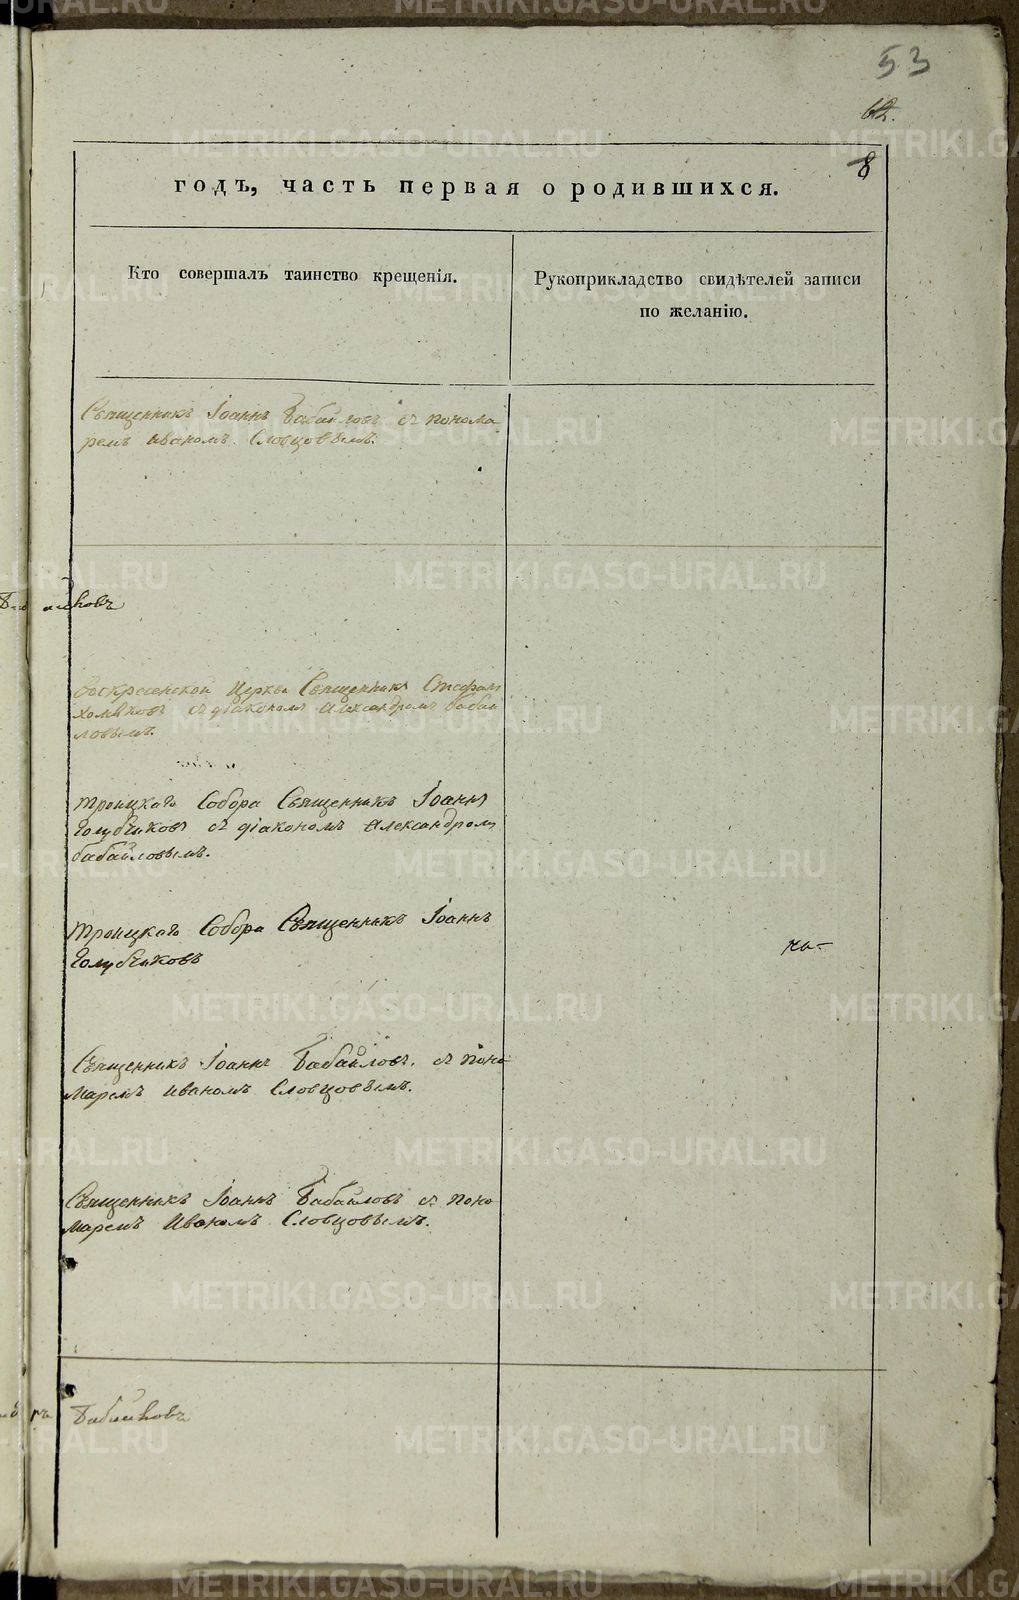 53
62.
8
годъ, часть первая о родившихся.
Кто совершалъ таинство крещенія.
Рукоприкладство свидѣтелей записи
по желанію.
Священникъ Іоаннъ Бабайловъ съ понома
ремъ Иваномъ Словцовымъ.
Воскресенской Церкви Священникъ Стефанъ
Хомяковъ съ діакономъ Александромъ Бабай
ловымъ.
Троицкаго Собора Священникъ Іоаннъ
Голубчиковъ съ діакономъ Александромъ
Бабайловымъ.
Троицкаго Собора Священникъ Іоаннъ
Голубчиковъ
Священникъ Іоаннъ Бабайловъ. съ Поно
маремъ Иваномъ Словцовымъ.
Священникъ Іоаннъ Бабайловъ съ Поно
маремъ Иваномъ Словцовымъ.
METRIKI.GASO-URAL.RU